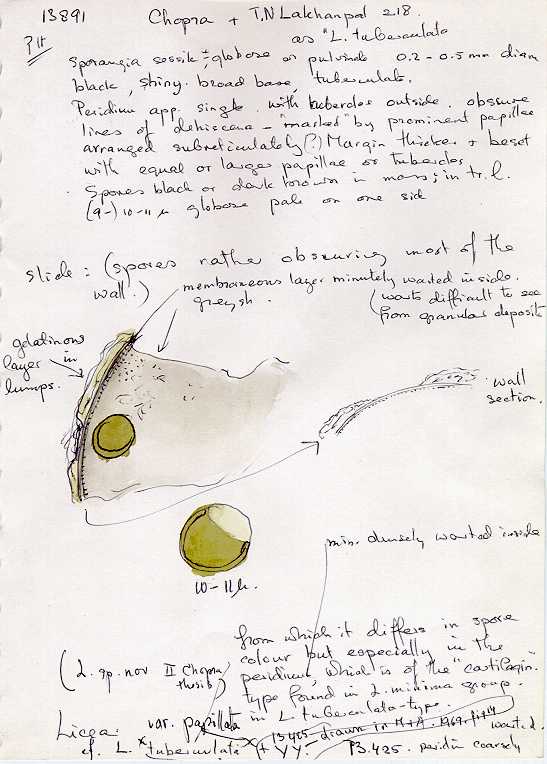 13891 Chopra + T.N Lakhanpal 218.
PH
as "L. tuberculata
Sporangia sessile ± globose or pulvinate 0.2 - 0.5 mm diam
black, shiny. broad base, tuberculate.
Peridium app. single. with tubercles outside. obscure
lines of dehiscence - "marked" by prominent papillae
arranged subreticulately (?) Margin thicker + beset
with equal or larger papillae or tubercles.
Spores black or dark brown in mass; in tr. l.
(9-) 10-11 µ globose pale on one side
slide: (spores rather obscuring most of the
wall.)
membraneous layer minutely warted inside.
greyish.
(warts difficult to see
from granular deposits
gelatinous
layer in
lumps.
wall
section.
10-11µ.
min. densely warted inside
from which it differs in spore
colour but especially in the
peridium, which is of the "cartilagin."
type found in L. minima group.
in L. tuberculata-type.
(L. sp. nov II Chopra
thesis)
Licea var. papillata
cf. L. tuberculata (+ YY.
13405 - drawn in M+A. 1969. fig 14
13.425. peridium coarsely warted.